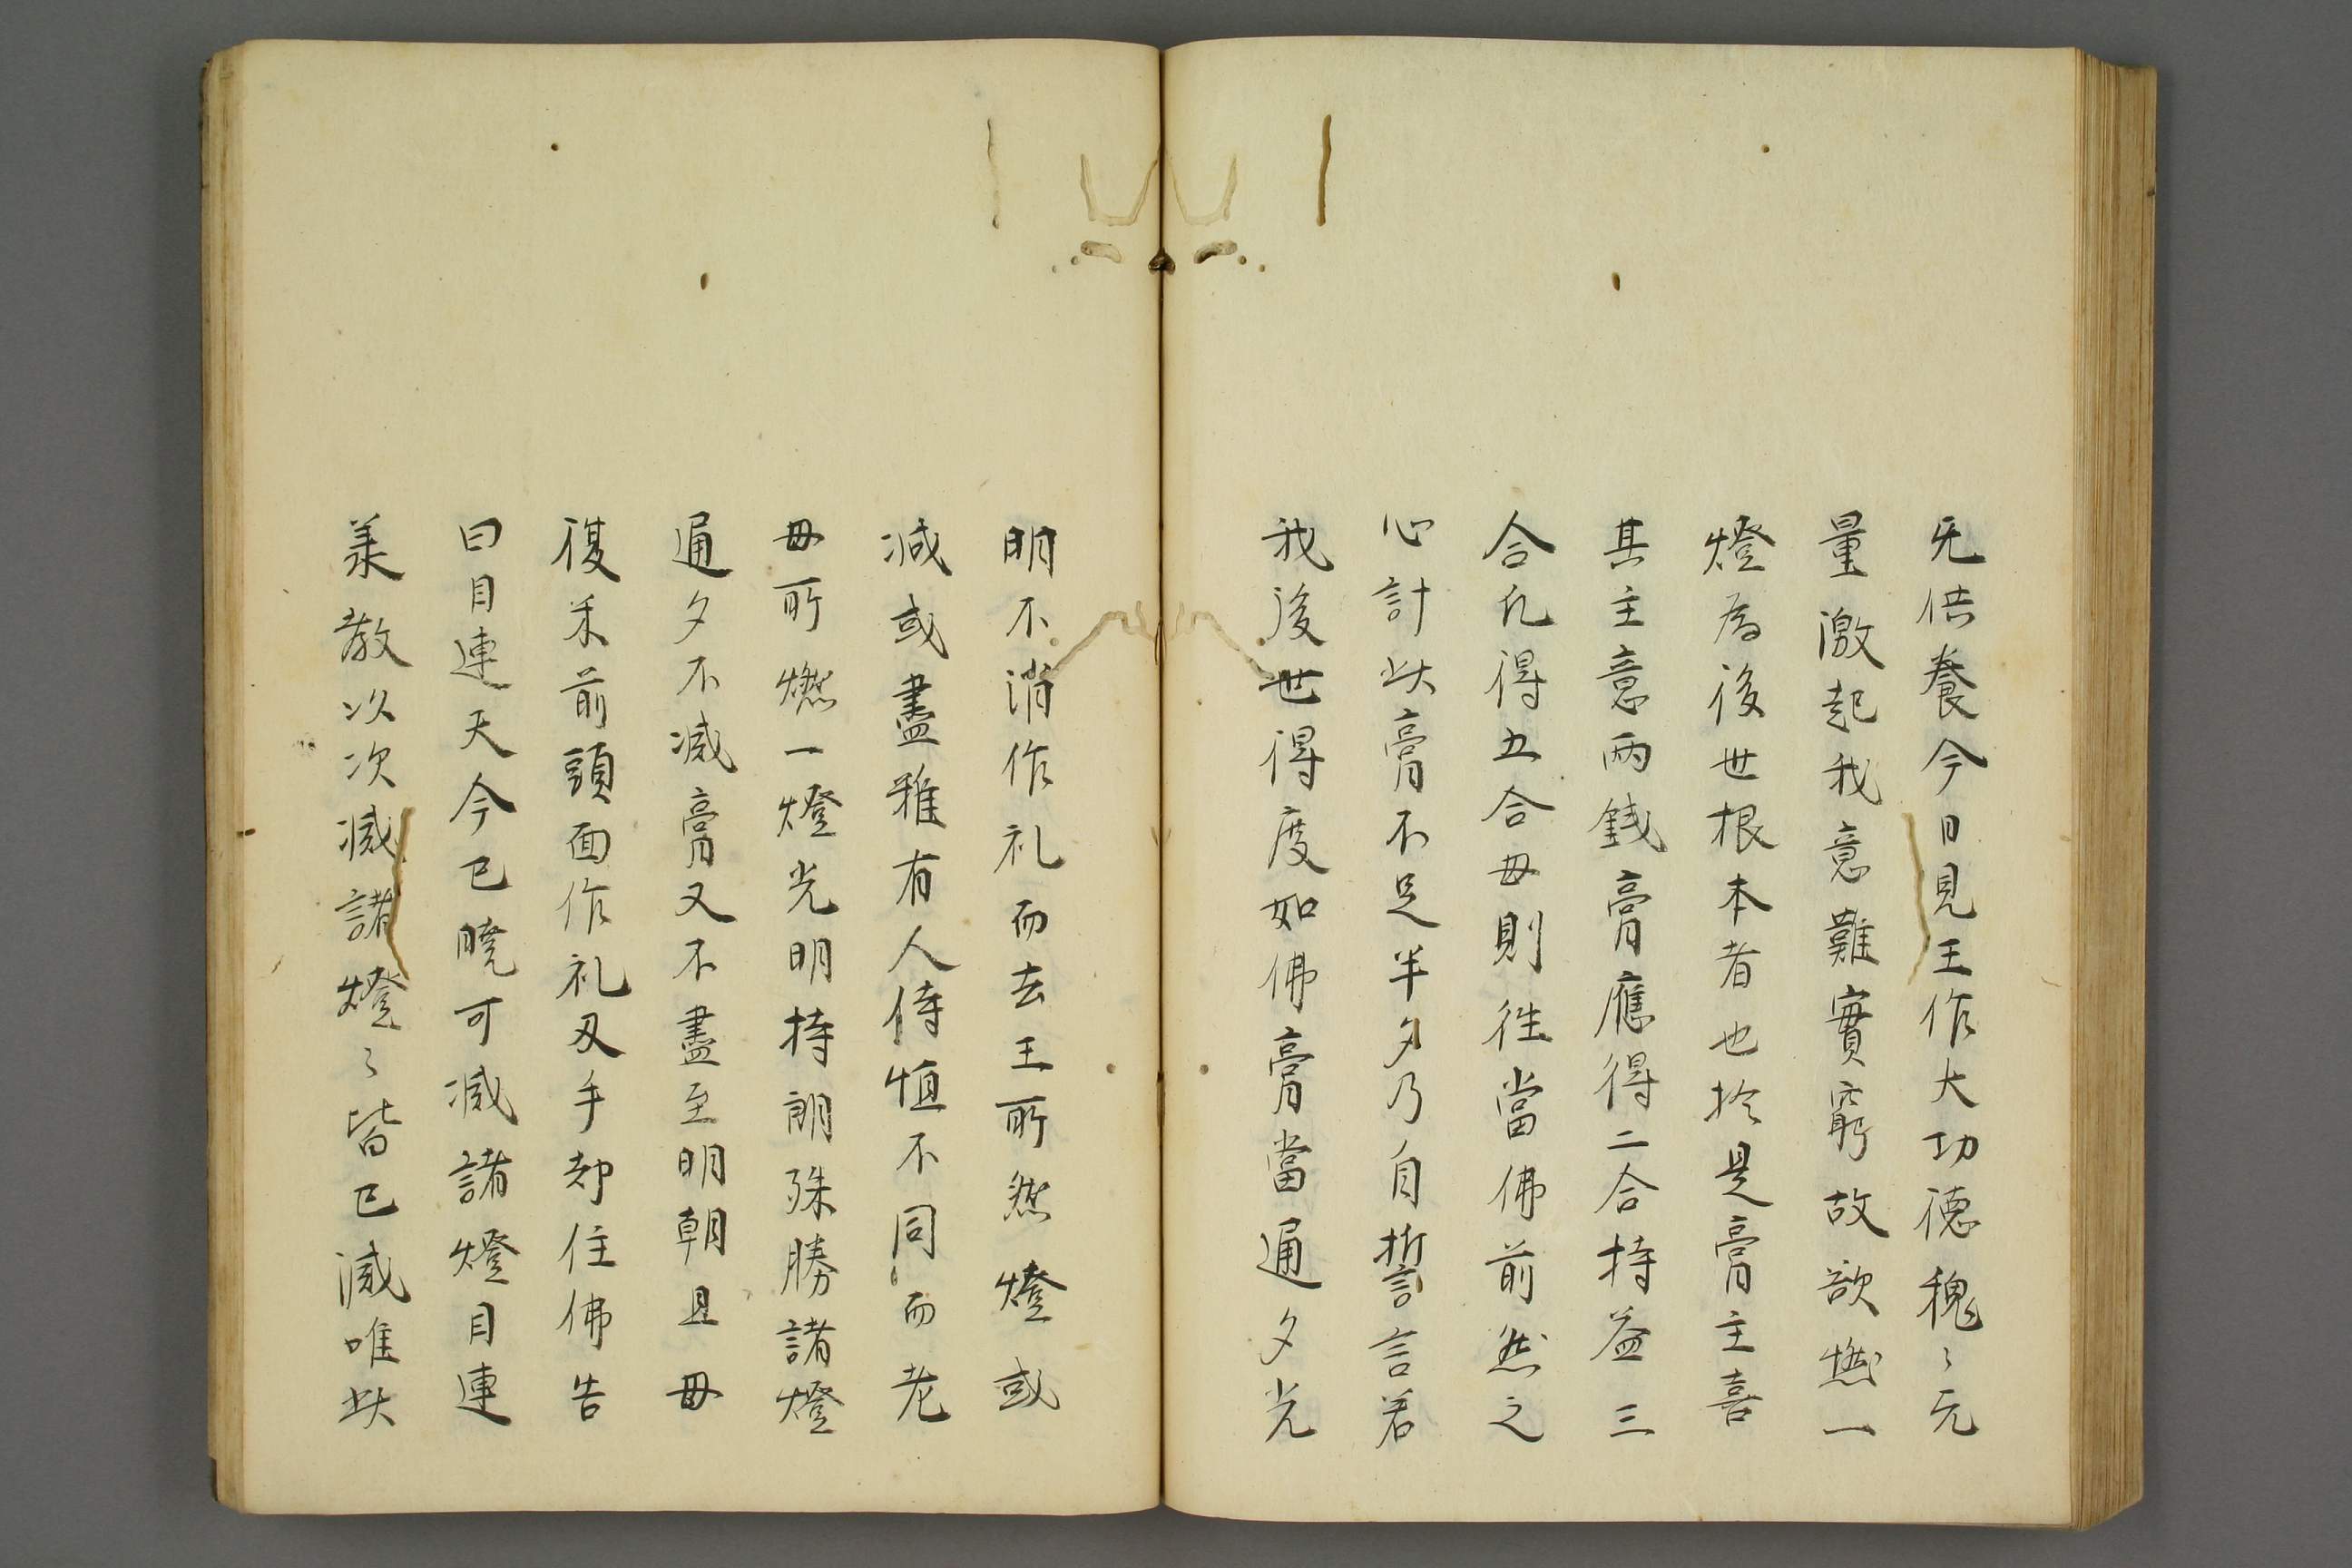 无供養今日見王作大功德䫥〻无
量激起我意難實窮故欲燃一
燈為後世根本者也於是膏主喜
其主意兩錢膏應得二合持益三
合凡得五合母則徃當佛前然之
心計此膏不足半夕乃自誓言若
我後世得度如佛膏當通夕光
明不消作礼而去王所然燈或
滅或盡雖有人侍恒不同而老
母所燃一燈光明持朗殊勝諸燈
通夕不滅膏又不盡至明朝旦母
復来前頭面作礼叉手却住佛告
曰目連天今已曉可滅諸燈目連
羕教以次滅諸燈〻皆已滅唯此